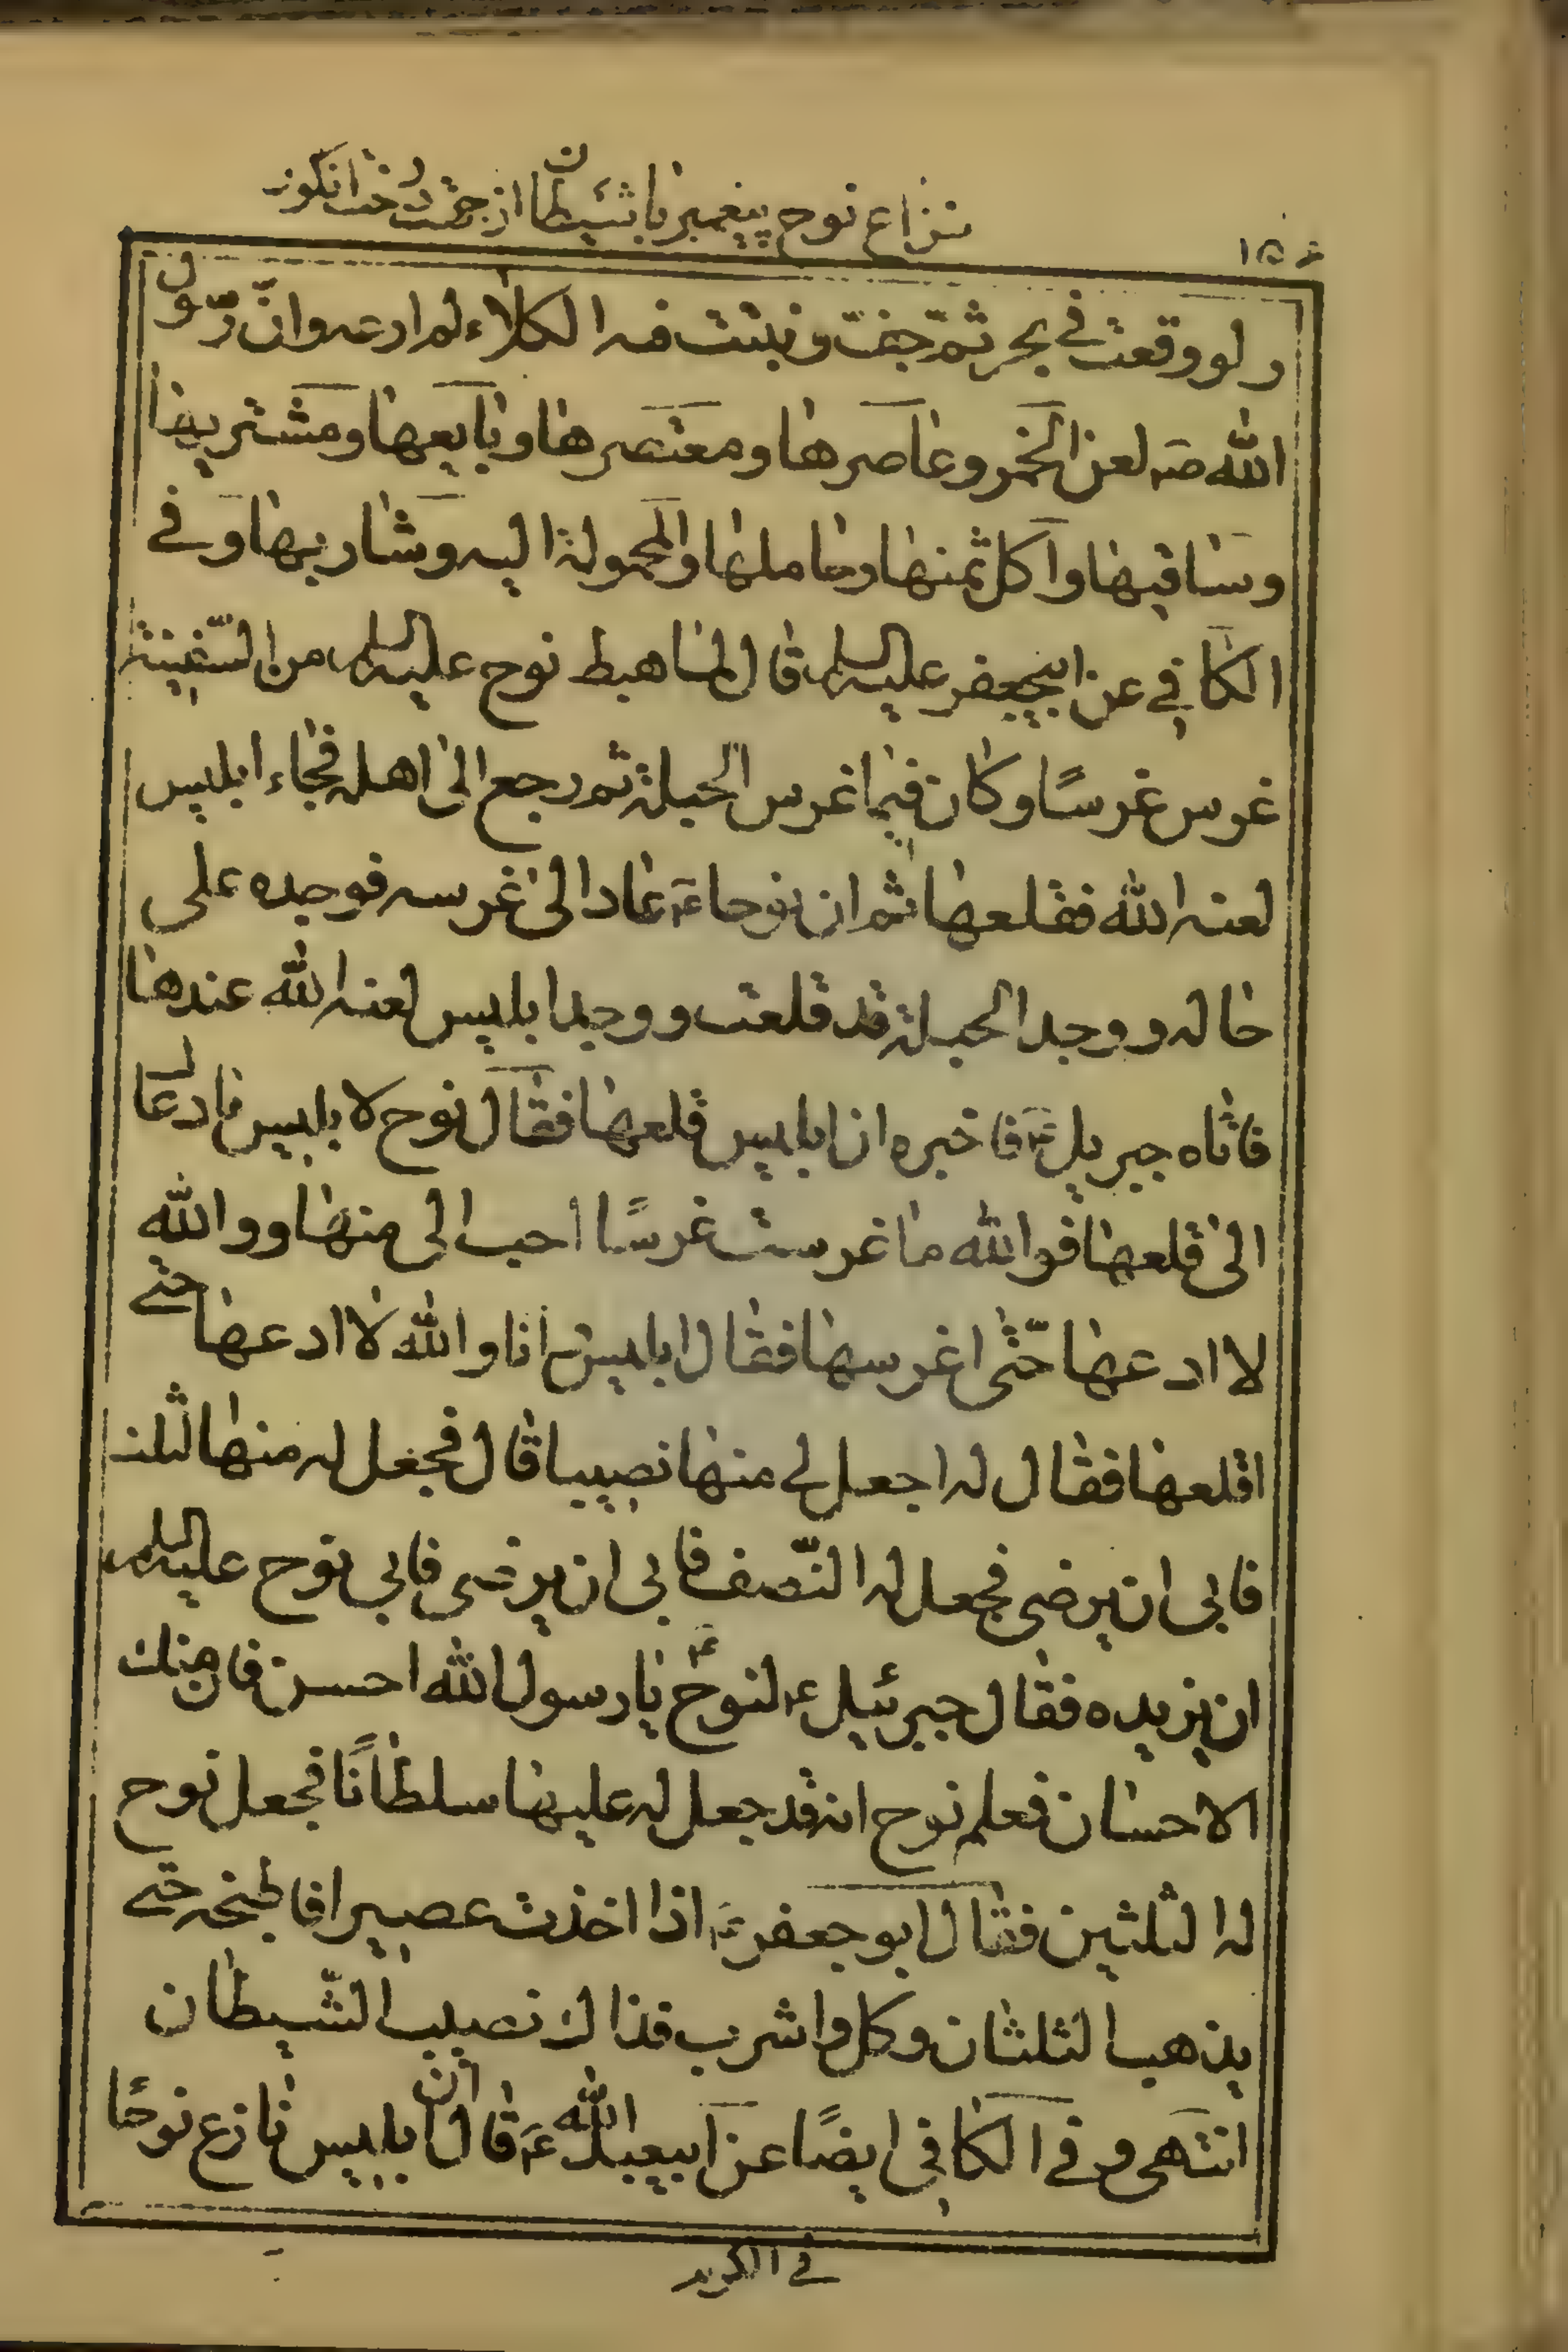 نزاع نوح پیغمبر با شیطان از جهت درخت انگور
ولو وقعت في بحر ثمّ جفّت و نبتت فيه الكلاء لم ارعه وانّ رسول
الله صه لعن الخمر وعاصرها ومعتصرها وبايعها ومشتريها
وساقيها واكل ثمنها وحاملها والمحمولة اليه وشاربها وفي
الكافي عن ابيجعفر عليه السلم قال لما هبط نوح عليه السلم من السّفينة
غرس غرسًا وكان فيما غرس الحبلة ثم رجع الى اهله فجاء ابليس
لعنه الله فقلعها ثم ان نوحا ع عاد الى غرسه فوجده على
حاله ووجد الحبلة قد قلعت ووجد ابليس لعنه الله عندها
فاتاه جبريل ع فاخبره ان ابليس قلعها فقال نوح لابليس ما دعاك
الى قلعها فوالله ما غرست غرسًا احب الى منها ووالله
لا ادعها حتّى اغرسها فقال ابليس انا والله لا ادعها حتى
اقلعها فقال له اجعل لي منها نصيبا قال فجعل له منها الثلث
فابى ان يرضى فجعل له النّصف فابى ان يرضى فابى نوح عليه السلم
ان يزيده فقال جبرئيل ع لنوح ع يا رسول الله احسن فان منك
الاحسان فعلم نوح انه قد جعل له عليها سلطانًا فجعل نوح
له الثلثين فقال ابو جعفر ع اذا اخذت عصيرا فاطبخه حتى
يذهب الثلثان وكل واشرب فذاك نصيب الشّيطان
انتهى و في الكافي ايضًا عن ابيعبد الله ع قال ان ابليس نازع نوحًا
في الكرم